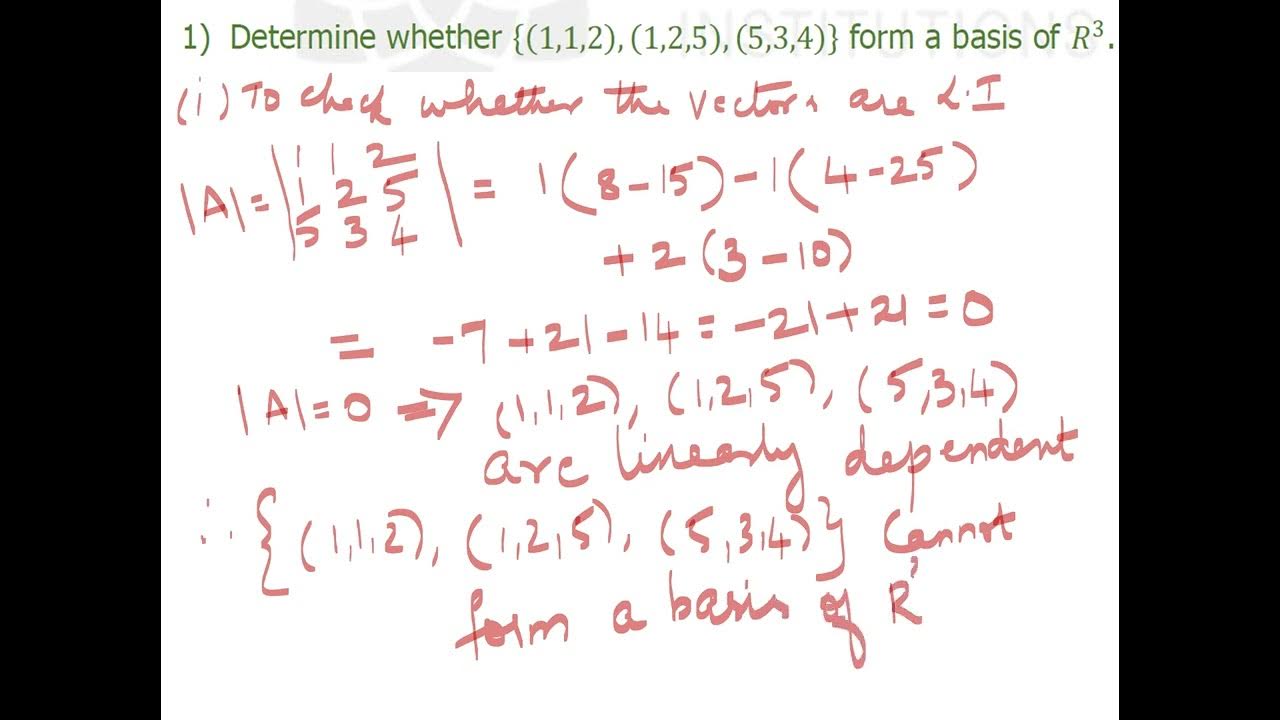 INSTITUTIONS
1) Determine whether {(1,1,2), (1,2,5), (5,3,4)} form a basis of R³.
(i) To check whether the vectors are L.I
|A| = | 1 1 2 | = 1(8-15) - 1(4-25)
1 2 5
5 3 4
+ 2 (3-10)
= -7 + 21 - 14 = -21 + 21 = 0
|A| = 0 => (1,1,2), (1,2,5), (5,3,4)
are linearly dependent
∴ {(1,1,2), (1,2,5), (5,3,4)} cannot
form a basis of R³